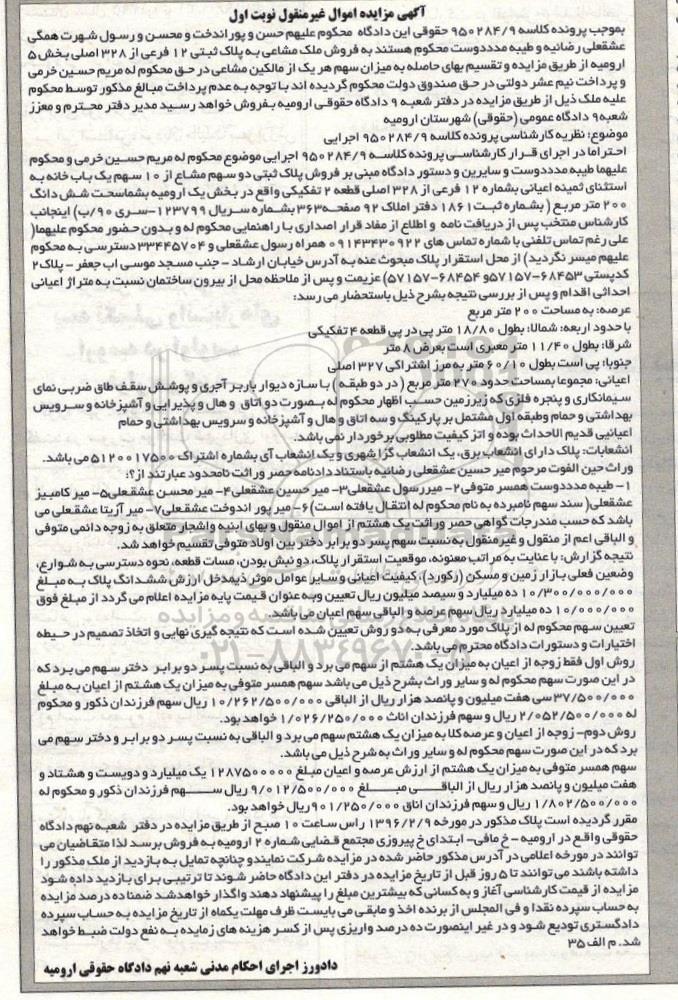 آگهی مزایده اموال غیرمنقول نوبت اول
بموجب پرونده کلاسه ۹۵۰۲۸۴/۹ حقوقی این دادگاه محکوم علیهم حسن و پوراندخت و محسن و رسول شهرت همگی
عشقعلی رضائیه و طیبه مدددوست محکوم هستند به فروش ملک مشاعی به پلاک ثبتی ۱۲ فرعی از ۳۲۸ اصلی بخش ۵
ارومیه از طریق مزایده و تقسیم بهای حاصله به میزان سهم هر یک از مالکین مشاعی در حق محکوم له مریم حسین خرمی
و پرداخت نیم عشر دولتی در حق صندوق دولت محکوم گردیده اند با توجه به عدم پرداخت مبالغ مذکور توسط محکوم
علیه ملک ذیل از طریق مزایده در دفتر شعبه ۹ دادگاه حقوقی ارومیه بفروش خواهد رسید مدیر دفتر محترم و معزز
شعبه ۹ دادگاه عمومی (حقوقی) شهرستان ارومیه
موضوع: نظریه کارشناسی پرونده کلاسه ۹۵۰۲۸۴/۹ اجرایی
احتراما در اجرای قرار کارشناسی پرونده کلاسه ۹۵۰۲۸۴/۹ اجرایی موضوع محکوم له مریم حسین خرمی و محکوم
علیهما طیبه مدددوست و سایرین و دستور دادگاه مبنی بر فروش پلاک ثبتی دو سهم مشاع از ۱۰ سهم یک باب خانه به
استثنای ثمنیه اعیانی بشماره ۱۲ فرعی از ۳۲۸ اصلی قطعه ۲ تفکیکی واقع در بخش یک ارومیه بشماسحت شش دانگ
۲۰۰ متر مربع ( بشماره ثبت ۱۸۶۱ دفتر املاک ۹۲ صفحه ۳۶۳ بشماره سریال ۱۲۳۷۹۹-سری ۹۰/ب) اینجانب
کارشناس منتخب پس از دریافت نامه و اطلاع از مفاد قرار اصداری با راهنمایی محکوم له و بدون حضور محکوم علیهما(
علی رغم تماس تلفنی با شماره تماس های ۰۹۱۴۳۴۳۰۹۲۲ همراه رسول عشقعلی و ۳۳۴۴۵۷۰۴ دسترسی به محکوم
علیهم میسر نگردید) از محل استقرار پلاک مبحوث عنه به آدرس خیابان ارشاد - جنب مسجد موسی اب جعفر - پلاک ۲
کدپستی ۶۸۴۵۳-۵۷۱۵۷ و ۶۸۴۵۴-۵۷۱۵۷) عزیمت و پس از ملاحظه محل از بیرون ساختمان نسبت به متراژ اعیانی
احداثی اقدام و پس از بررسی نتیجه بشرح ذیل باستحضار می رسد:
عرصه: به مساحت ۲۰۰ متر مربع
با حدود اربعه: شمالا: بطول ۱۸/۸۰ متر پی در پی قطعه ۴ تفکیکی
شرقا: بطول ۱۱/۴۰ متر معبری است بعرض ۸ متر
جنوبا: پی است بطول ۶۰/۱۰ متر به مرز اشتراکی ۳۲۷ اصلی
اعیانی: مجموعا بمساحت حدود ۲۷۰ متر مربع ( در دو طبقه ) با سازه دیوار باربر آجری و پوشش سقف طاق ضربی نمای
سیمانکاری و پنجره فلزی که زیرزمین حسب اظهار محکوم له بصورت دو اتاق و هال و پذیرایی و آشپزخانه و سرویس
بهداشتی و حمام وطبقه اول مشتمل بر پارکینگ و سه اتاق و هال و آشپزخانه و سرویس بهداشتی و حمام
اعیانیی قدیم الاحداث بوده و از کیفیت مطلوبی برخوردار نمی باشد.
انشعابات: پلاک دارای انشعاب برق، یک انشعاب گز اشهری و یک انشعاب آب بشماره اشتراک ۵۱۲۰۰۱۷۵۰۰ می باشد.
وراث حین الفوت مرحوم میر حسین عشقعلی رضائیه باستناد دادنامه حصر وراثت نامحدود عبارتند از؟:
۱- طیبه مدددوست همسر متوفی ۲- میررسول عشقعلی ۳- میر حسین عشقعلی ۴- میر محسن عشقعلی ۵- میر کامبیز
عشقعلی( سند سهم نامبرده به نام محکوم له انتقال یافته است) ۶- میر پور اندوخت عشقعلی ۷- میر آزیتا عشقعلی می
باشد که حسب مندرجات گواهی حصر وراثت یک هشتم از اموال منقول و بهای ابنیه واشجار متعلق به زوجه دائمی متوفی
و الباقی اعم از منقول و غیرمنقول به نسبت سهم پسر دو برابر دختر بین اولاد متوفی تقسیم خواهد شد.
نتیجه گزارش: با عنایت به مراتب معنونه، موقعیت استقرار پلاک، دو نبش بودن، مسات قطعه، نحوه دسترسی به شوارع،
وضعین فعلی بازار زمین و مسکن (رکورد)، کیفیت اعیانی و سایر عوامل موثر ذیمدخل ارزش ششدانگ پلاک به مبلغ
۱۰/۳۰۰/۰۰۰/۰۰۰ ده میلیارد و سیصد میلیون ریال تعیین وبه عنوان قیمت پایه مزایده اعلام می گردد از مبلغ فوق
۱۰/۰۰۰/۰۰۰ ده میلیارد ریال سهم عرصه و الباقی سهم اعیان می باشد.
تعیین سهم محکوم له از پلاک مورد معرفی به دو روش تعیین شده است که نتیجه گیری نهایی و اتخاذ تصمیم در حیطه
اختیارات و دستورات دادگاه محترم می باشد.
روش اول فقط زوجه از اعیان به میزان یک هشتم از سهم می برد و الباقی به نسبت پسر دو برابر دختر سهم می برد که
در این صورت سهم محکوم له و سایر وراث بشرح ذیل می باشد سهم همسر متوفی به میزان یک هشتم از اعیان به مبلغ
۳۷/۵۰۰/۰۰۰ سی هفت میلیون و پانصد هزار ریال از الباقی ۱۰/۲۶۲/۵۰۰/۰۰۰ ریال سهم فرزندان ذکور و محکوم
له ۲/۰۵۲/۵۰۰/۰۰۰ ریال و سهم فرزندان اناث ۱/۰۲۶/۲۵۰/۰۰۰ خواهد بود.
روش دوم- زوجه از اعیان و عرصه کلا به میزان یک هشتم سهم می برد و الباقی به نسبت پسر دو برابر و دختر سهم می
برد که در این صورت سهم محکوم له و سایر وراث به شرح ذیل می باشد.
سهم همسر متوفی به میزان یک هشتم از ارزش عرصه و اعیان مبلغ ۱۲۸۷۵۰۰۰۰۰ یک میلیارد و دویست و هشتاد و
هفت میلیون و پانصد هزار ریال از الباقی مبلغ ۹/۰۱۲/۵۰۰/۰۰۰ ریال سهم فرزندان ذکور و محکوم له
۱/۸۰۲/۵۰۰/۰۰۰ ریال و سهم فرزندان اناق ۹۰۱/۲۵۰/۰۰۰ ریال خواهد بود.
مقرر گردیده است پلاک مذکور در مورخه ۱۳۹۶/۲/۹ راس ساعت ۱۰ صبح از طریق مزایده در دفتر شعبه نهم دادگاه
حقوقی واقع در ارومیه - خ مافی- ابتدای خ پیروزی مجتمع قضایی شماره ۲ ارومیه به فروش برسد لذا متقاضیان می
توانند در مورخه اعلامی در آدرس مذکور حاضر شده در مزایده شرکت نمایندو چنانچه تمایل به بازدید از ملک مذکور را
داشته باشند می توانند تا ۵ روز قبل از تاریخ مزایده در دفتر این دادگاه حاضر شوند تا ترتیبی برای بازدید داده شود
مزایده از قیمت کارشناسی آغاز و به کسانی که بیشترین مبلغ را پیشنهاد دهند واگذار خواهدشد ضمنا ده درصد مزایده
به حساب سپرده نقدا و فی المجلس از برنده اخذ و مابقی می بایست ظرف مهلت یکماه از تاریخ مزایده به حساب سپرده
دادگستری تودیع شود و در غیر اینصورت ده درصد واریزی پس از کسر هزینه های زمایده به نفع دولت ضبط خواهد
شد. م الف ۳۵
دادورز اجرای احکام مدنی شعبه نهم دادگاه حقوقی ارومیه
۰۲۱-۸۸۳۴۹۶۷۰